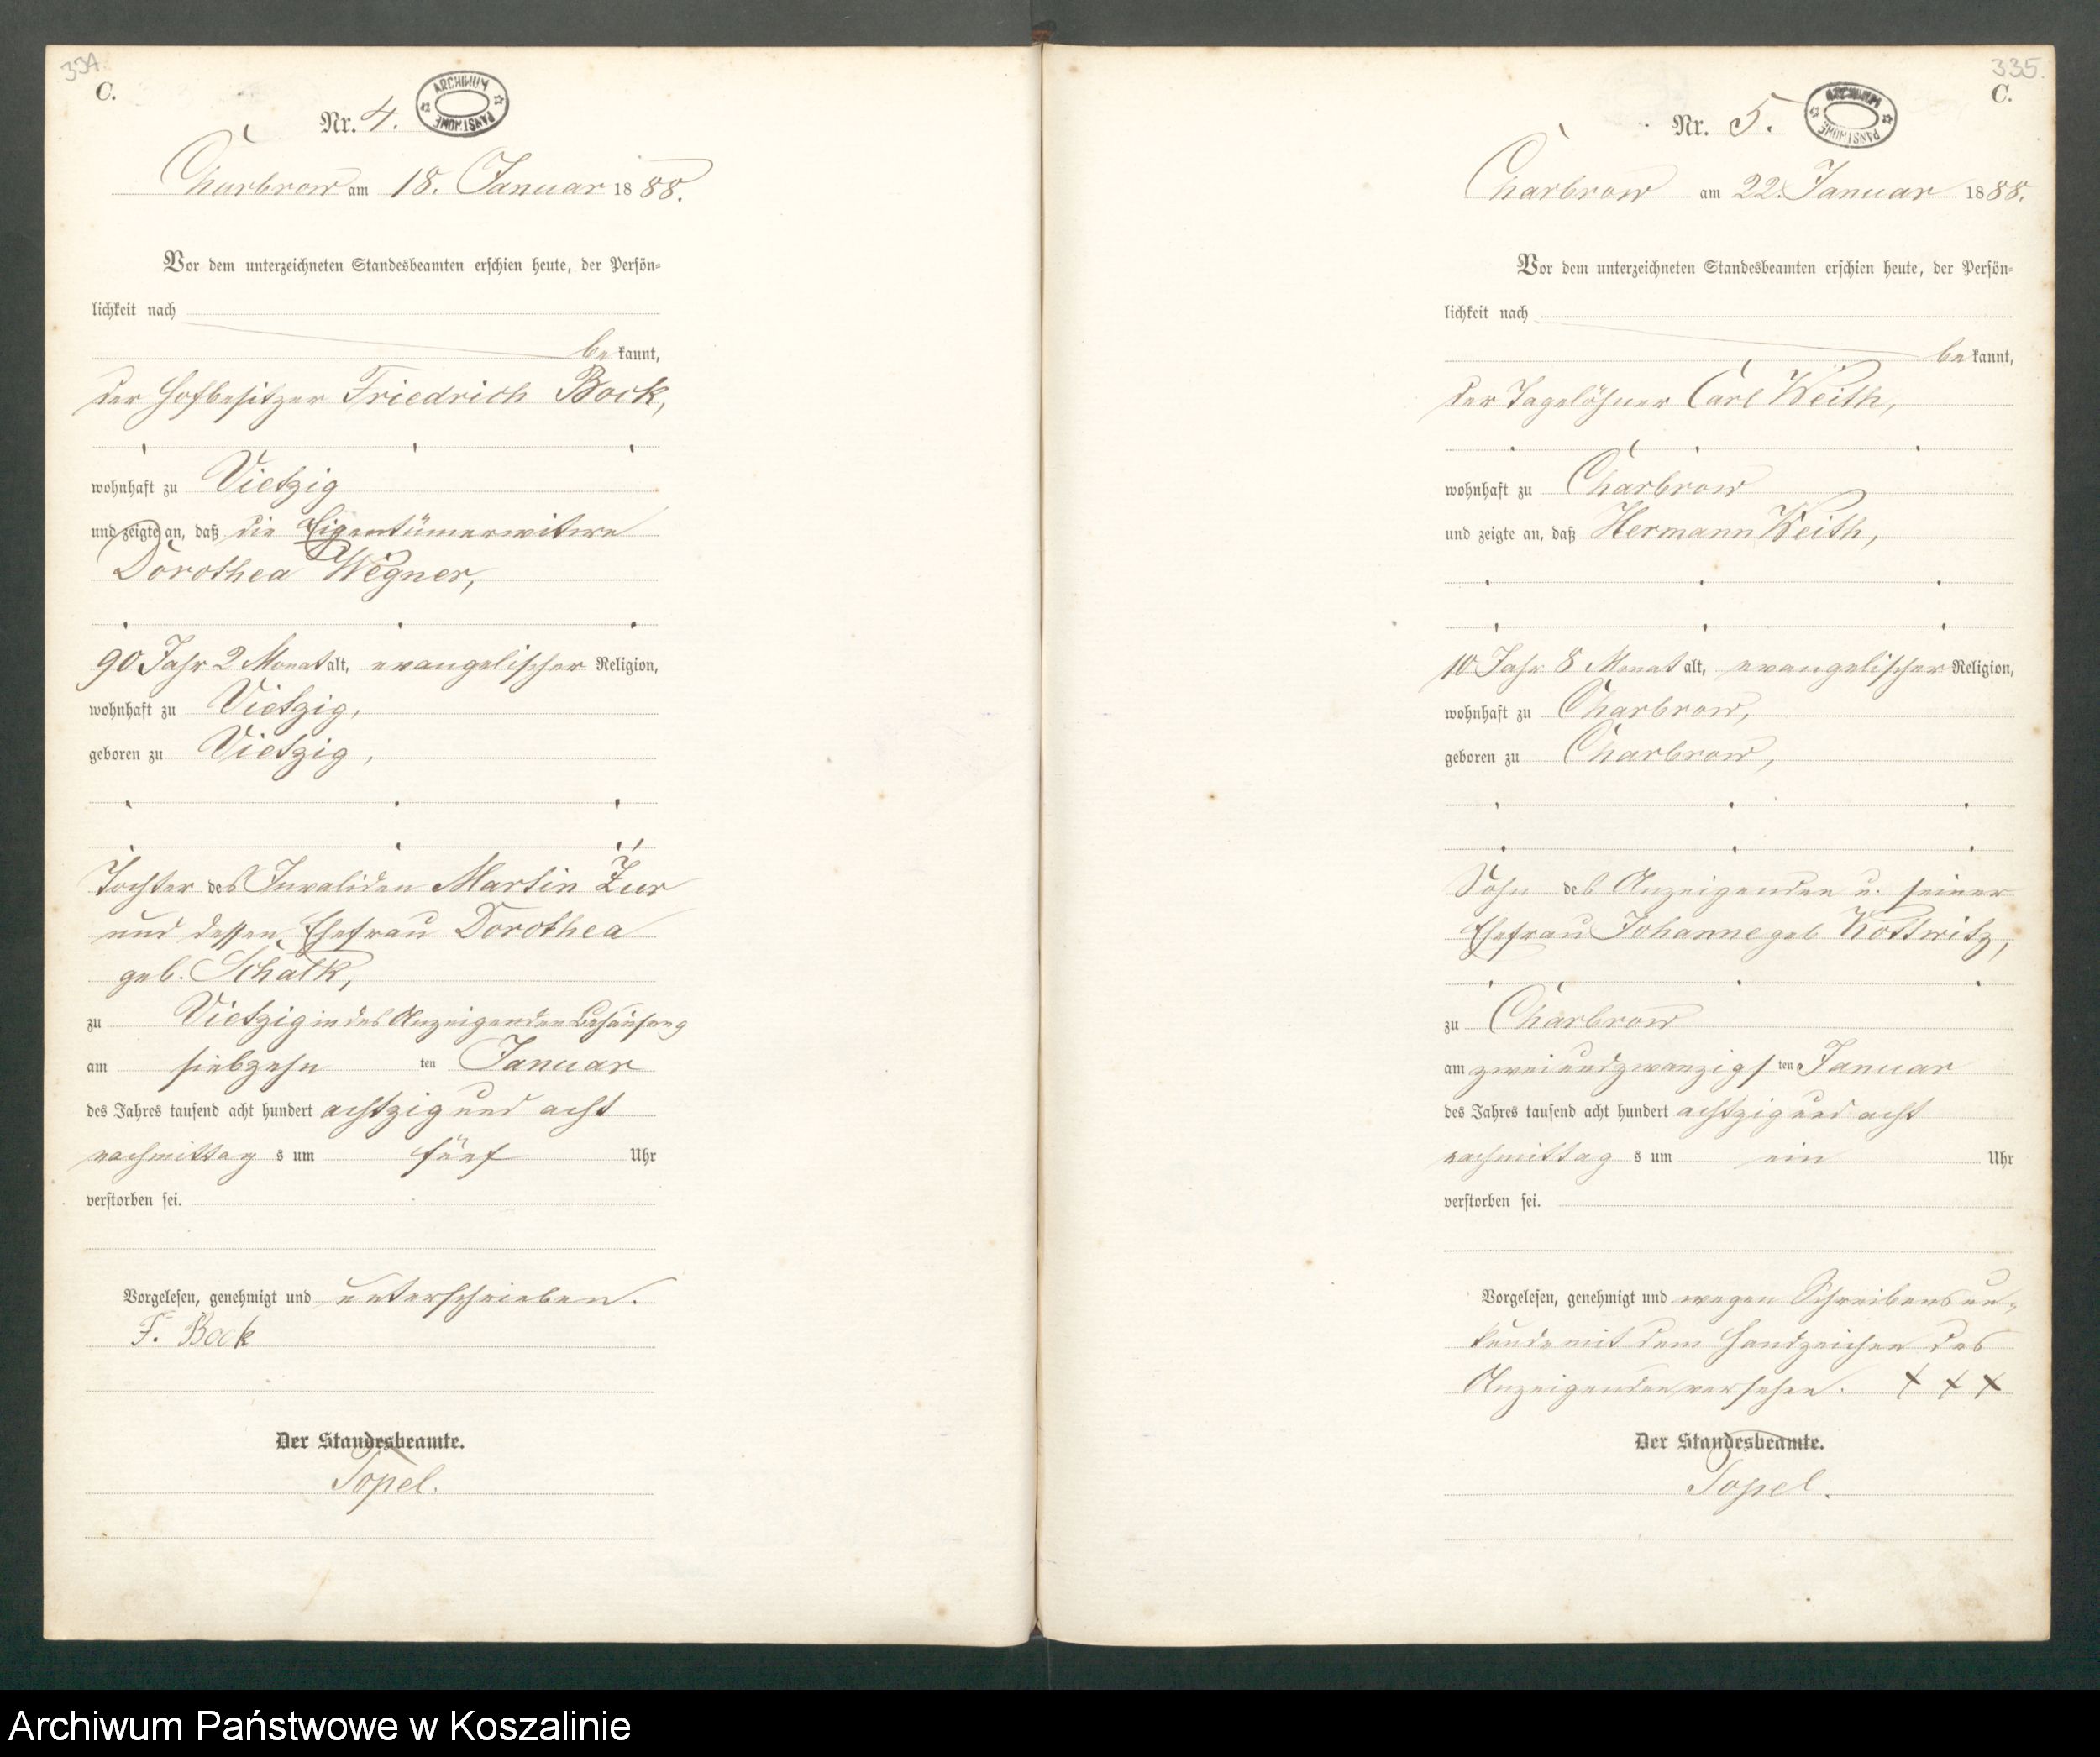 334.
C.
Nr. 4.
ARCHIWUM PAŃSTWOWE
Charbrow am 18. Januar 1888.
Vor dem unterzeichneten Standesbeamten erschien heute, der Persön-
lichkeit nach
bekannt,
der Hofbesitzer Friedrich Bock,
wohnhaft zu Vietzig
und zeigte an, daß die Eigentümerwitwe
Dorothea Wegner,
90 Jahr 2 Monat alt, evangelischer Religion,
wohnhaft zu Vietzig,
geboren zu Vietzig,
Tochter des Invaliden Martin Zur
und dessen Ehefrau Dorothea
geb. Schalk,
zu Vietzig in des Anzeigenden Behausung
am siebzehn ten Januar
des Jahres tausend acht hundert achtzig und acht
nachmittag s um fünf Uhr
verstorben sei.
Vorgelesen, genehmigt und unterschrieben.
F. Bock
Der Standesbeamte.
Topel.
335.
C.
Nr. 5.
ARCHIWUM PAŃSTWOWE
Charbrow am 22. Januar 1888.
Vor dem unterzeichneten Standesbeamten erschien heute, der Persön-
lichkeit nach
bekannt,
der Tagelöhner Carl Keith,
wohnhaft zu Charbrow
und zeigte an, daß Hermann Keith,
10 Jahr 8 Monat alt, evangelischer Religion,
wohnhaft zu Charbrow,
geboren zu Charbrow,
Sohn des Anzeigenden u. seiner
Ehefrau Johanne geb Kottwitz,
zu Charbrow
am zweiundzwanzigs ten Januar
des Jahres tausend acht hundert achtzig und acht
nachmittag s um ein Uhr
verstorben sei.
Vorgelesen, genehmigt und wegen Schreibensun-
kunde mit dem Handzeichen des
Anzeigenden versehen. + + +
Der Standesbeamte.
Topel.
Archiwum Państwowe w Koszalinie